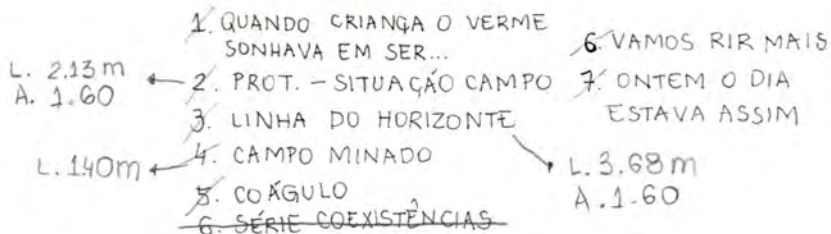 1. QUANDO CRIANÇA O VERME
SONHAVA EM SER...
2. PROT. - SITUAÇÃO CAMPO
3. LINHA DO HORIZONTE
4. CAMPO MINADO
5. COÁGULO
6. SÉRIE COEXISTÊNCIAS
6. VAMOS RIR MAIS
7. ONTEM O DIA
ESTAVA ASSIM
L. 2.13 m
A. 1.60
L. 1.40m
L. 3.68 m
A. 1.60